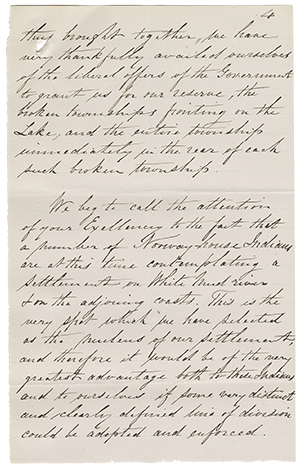 4
thus brought together, we have
very thankfully availed ourselves
of the liberal offers of the Government
to grant us for our reserve, the
broken townships fronting on the
Lake, and the entire township
immediately in the rear of each
such broken township.
We beg to call the attention
of your Excellency to the fact that
a number of Norwayhouse Indians
are at this time contemplating a
settlement on White Mud river
& on the adjoining coasts. This is the
very spot which we have selected
as the nucleus of our settlement,
and therefore it would be of the very
greatest advantage both to these Indians
and to ourselves if some very distinct
and clearly defined line of division
could be adopted and enforced.